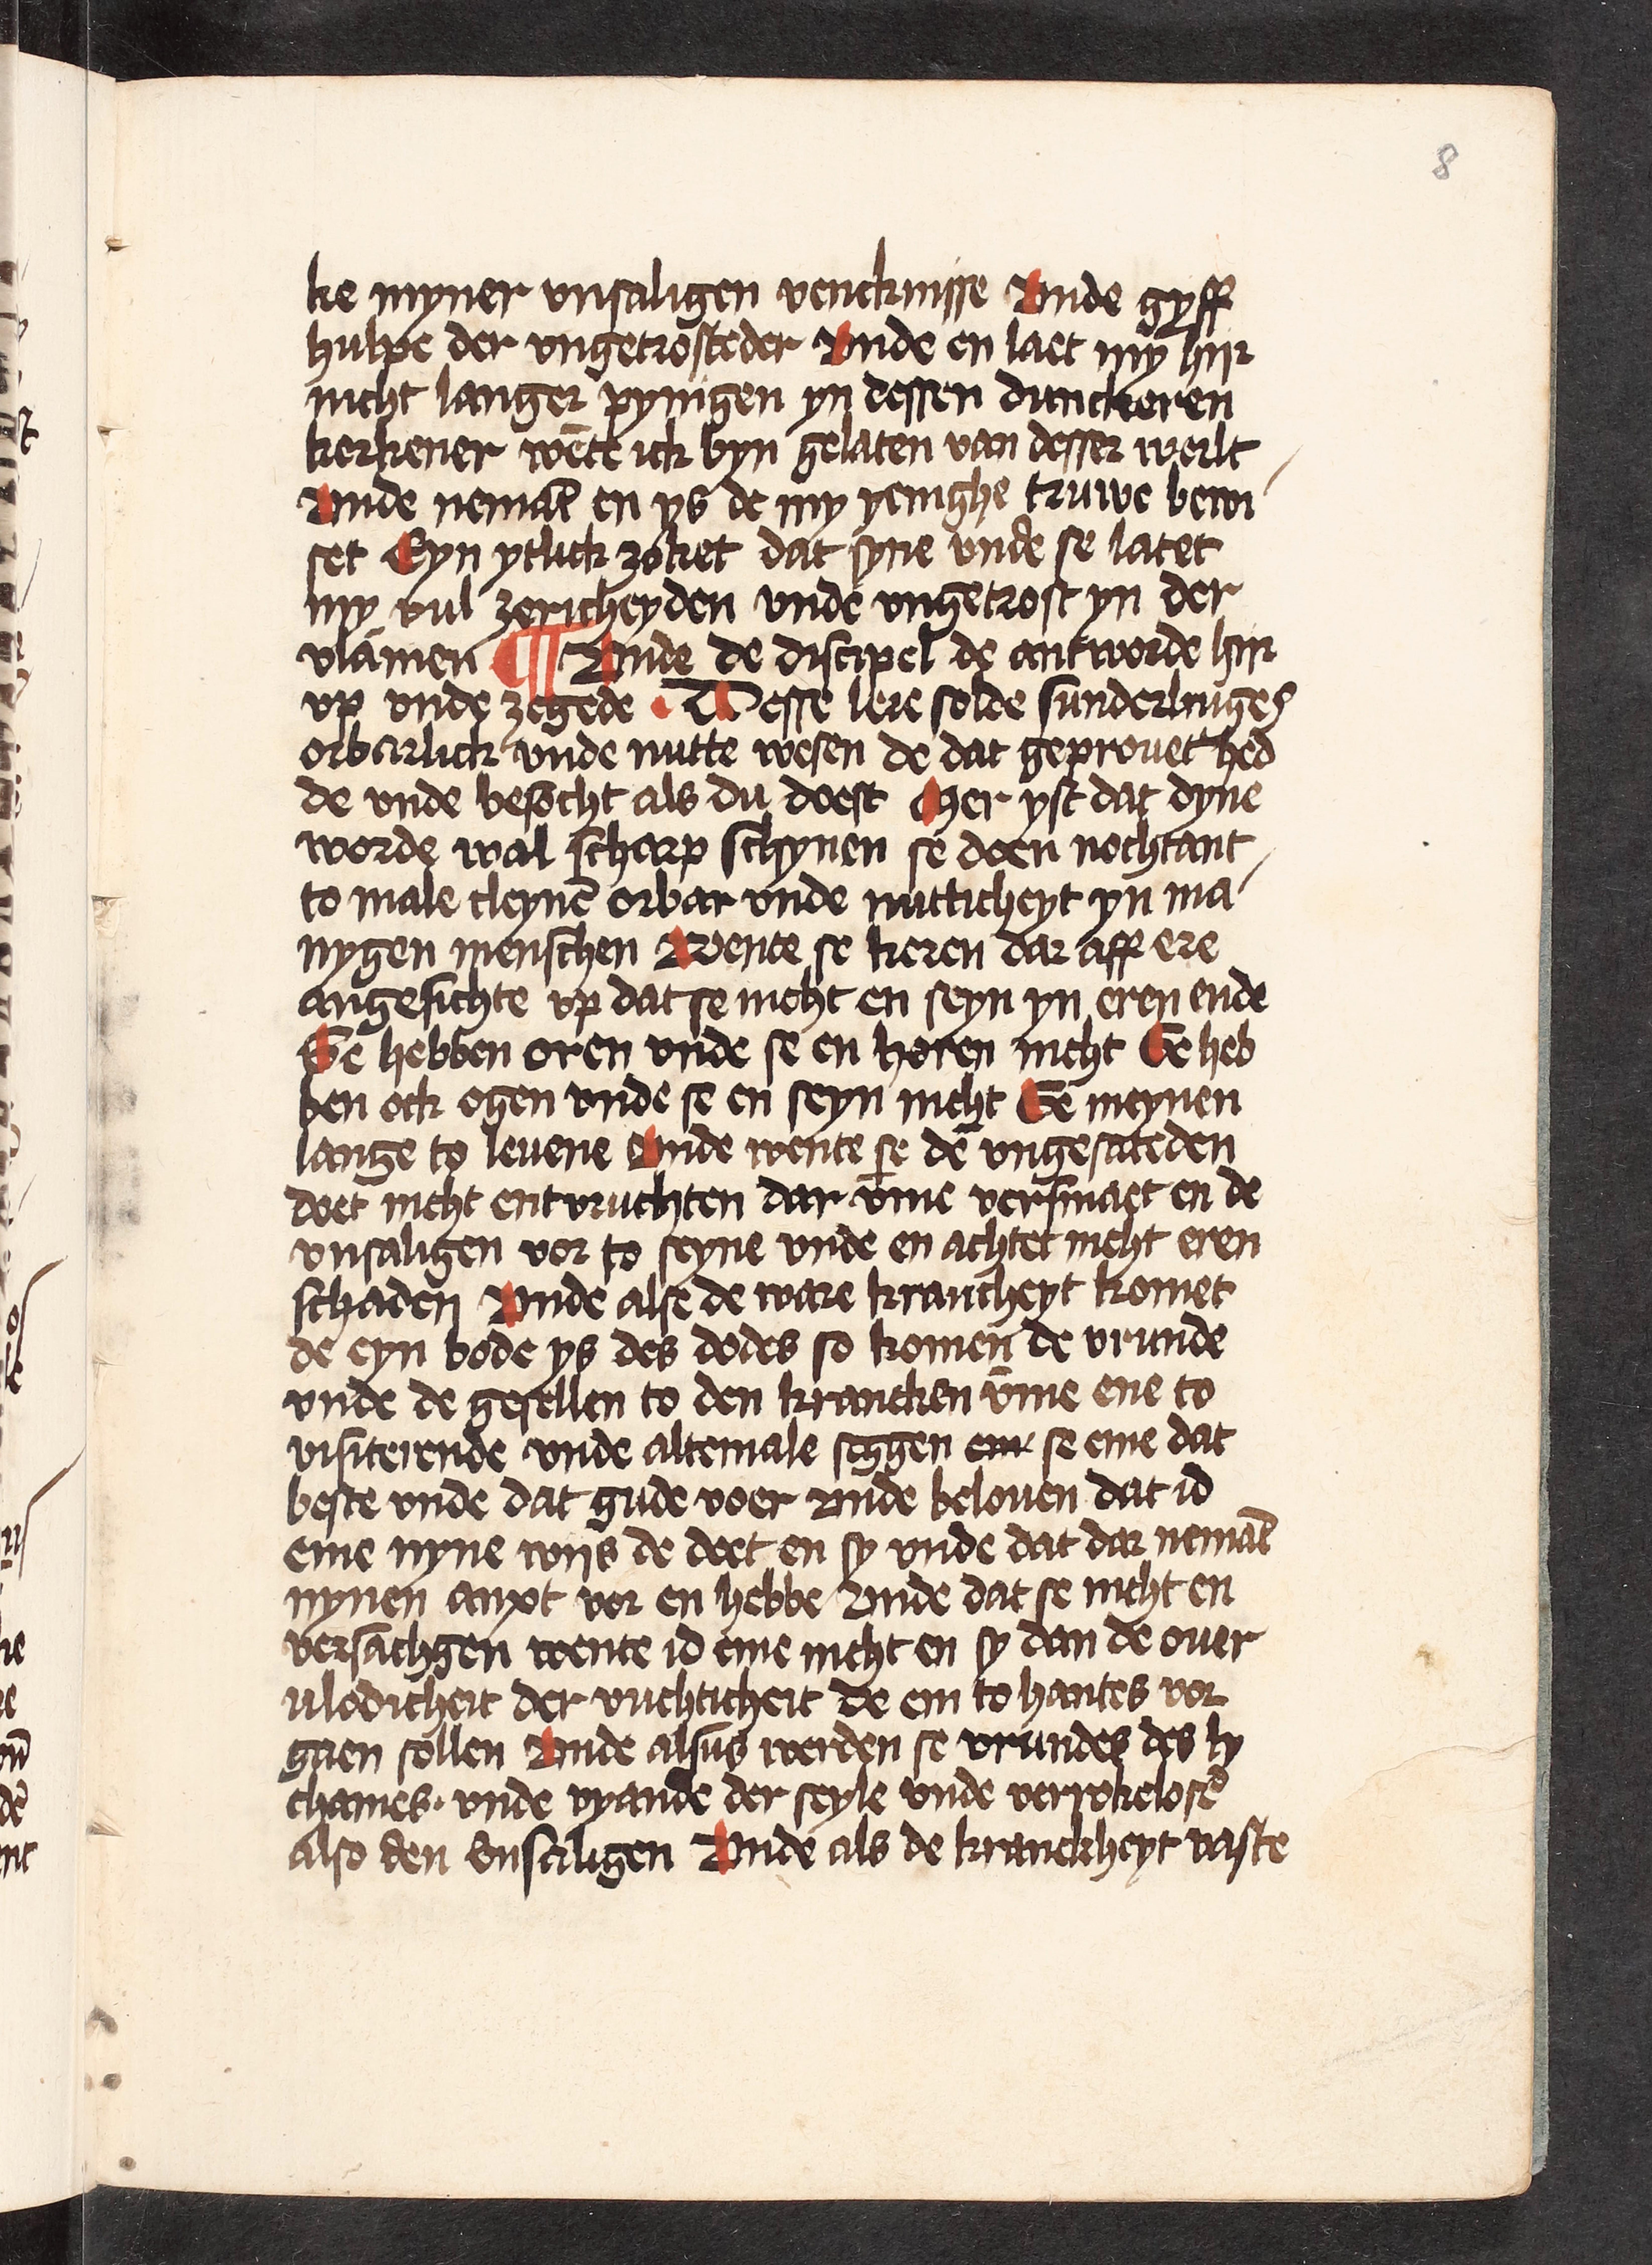 8
ke myner vnsaligen venckmisse Vnde gyff
hulpe der vngetrosteder Vnde en laet my hijr
nicht langer pynigen yn dessen dunckeren
kerkener wēte ick byn gelaten van desser werlt
Vnde nemāt en ys de my yenighe truwe bewi
set Eyn ytlick zoket dat syne vnde se latet
my vul zericheyden vnde vngetrost yn der
vlāmen ¶ Vnde de discipel de antworde hijr
vp vnde zegede · Desse lere solde sunderlinges
orbarlick vnde nutte wesen de dat geprouet hed
de vnde besocht als du doest Mer yst dat dyne
worde wal scharp schynen se doen nochtant
to male cleynē orbar vnde nutticheyt yn ma
nygen menschen Wente se keren dar aff ere
angesichte vp dat se nicht en seyn yn eren ende
Se hebben oren vnde se en horen nicht Se heb
ben ock ogen vnde se en seyn nicht Se meynen
lange to leuene Vnde wente se dē vngesateden
doet nicht entvruchten dar vme versmaet en de
vnsaligen vor to seyne vnde en achtet nicht eren
schaden Vnde alse de ware krancheyt komet
de eyn bode ys des dodes so komen de vrunde
vnde de gesellen to den krancken vme ene to
visiterende vnde altemale seggen se eme dat
beste vnde dat gude voer Vnde belouen dat id
eme nyne wijs de doet en sy vnde dat dar nemāt
nynen anxt vor en hebbe Vnde dat se nicht en
versachgen wente id eme nicht en sy dan de ouer
vlodicheit der vuchticheit de em to hantes vor
gaen sollen Vnde alsus werden se vrundes des ly
chames· vnde vyande der seyle vnde verrokelosē
also den vnsaligen Vnde als de kranckheyt vaste